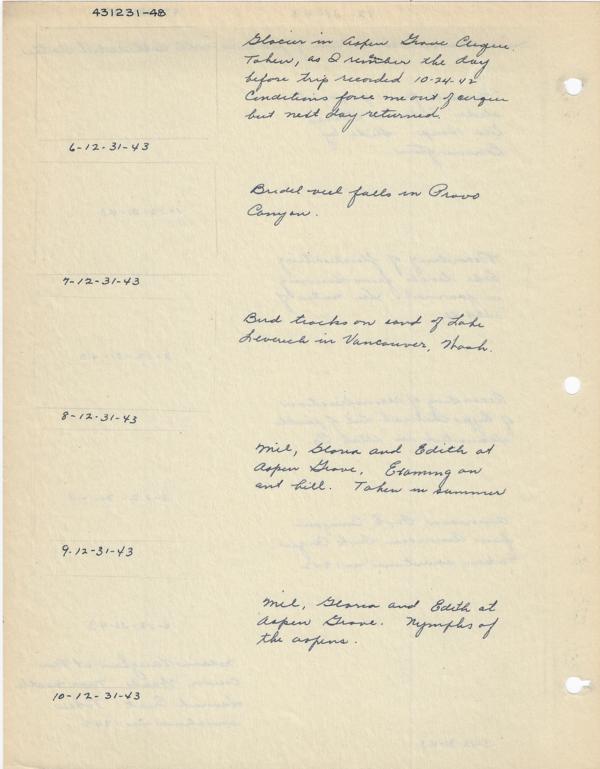 431231-48
Glacier in Aspen Grove Cirque.
Taken, as I remember the day
before trip recorded 10-24-42
Conditions force me out of cirque
but next day returned.
6-12-31-43
Bridel veil falls in Provo
Canyon.
7-12-31-43
Bird tracks on sand of Lake
Leverich in Vancouver, Wash.
8-12-31-43
Mil, Gloria and Edith at
Aspen Grove. Examing an
ant hill. Taken in summer
9-12-31-43
Mil, Gloria and Edith at
Aspen Grove. Nymphs of
the aspens.
10-12-31-43